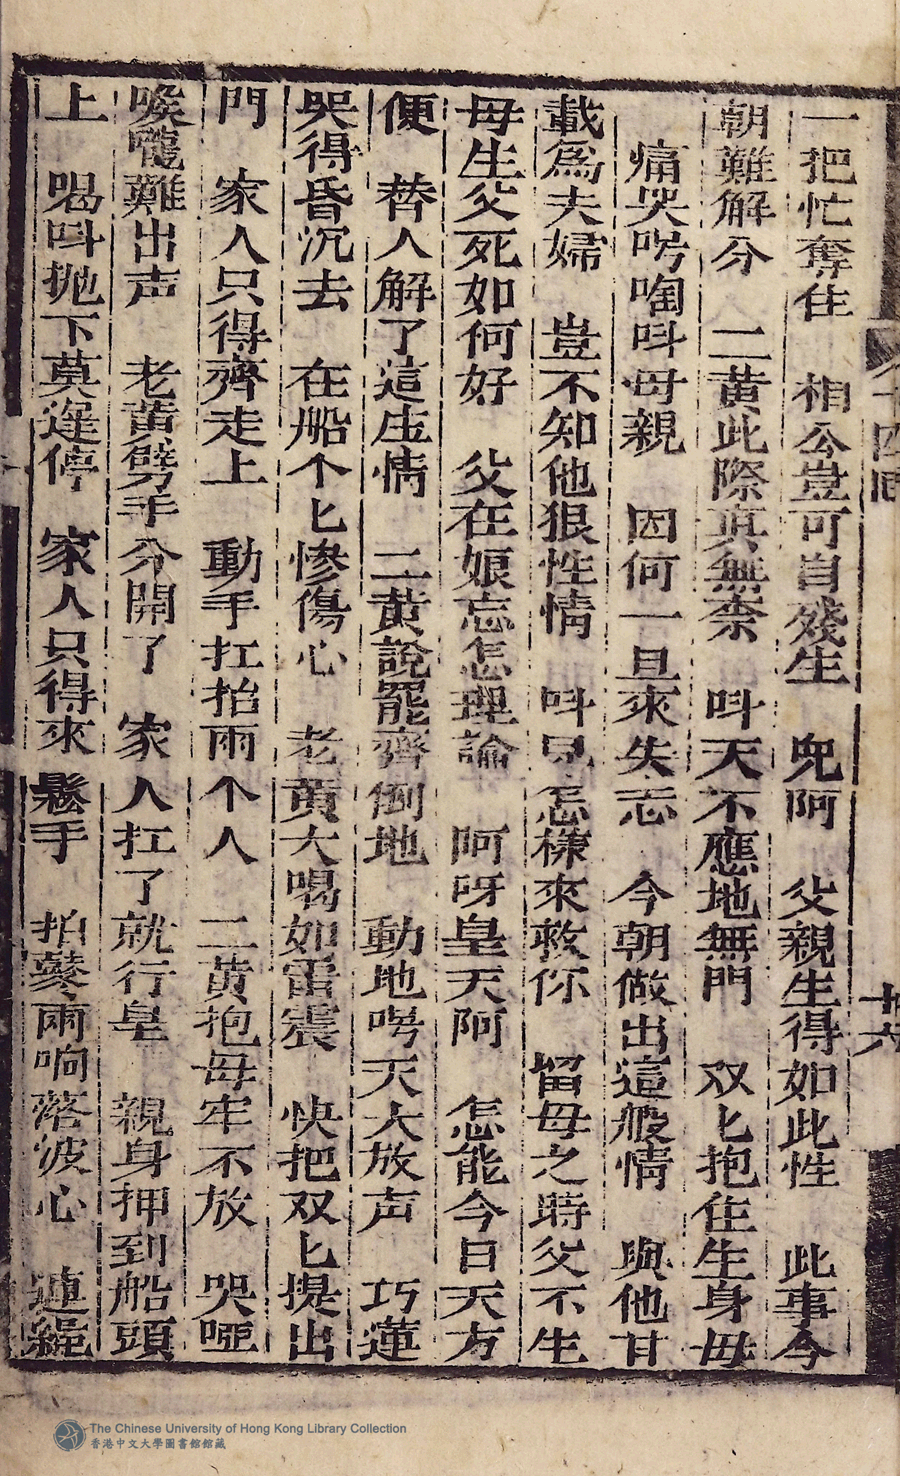 一把忙奪住　相公豈可自殘生　兒阿　父親生得如此性　此事今
朝難解分　二黃此際真無柰　叫天不應地無門　双匕抱住生身母
痛哭呺啕叫母親　因何一旦來失志　今朝做出這般情　與他廿
載爲夫婦　豈不知他狠性情　叫兒怎樣來救你　留母之時父不生
母生父死如何好　父在娘忘怎理論　阿呀皇天阿　怎能今日天方
便　替人解了這庄情　二黃說罷齊倒地　動地呺天大放声　巧蓮
哭得昏沉去　在船个匕慘傷心　老黃大喝如雷震　快把双匕提出
門　家人只得齊走上　動手扛抬兩个人　二黃抱母牢不放　哭啞
喉嚨難出声　老黃劈手分開了　家人扛了就行皇　親身押到船頭
上　喝叫抛下莫遲停　家人只得來鬆手　拍鼕兩响落波心　連繩
十四回
廿六
The Chinese University of Hong Kong Library Collection
香港中文大學圖書館館藏